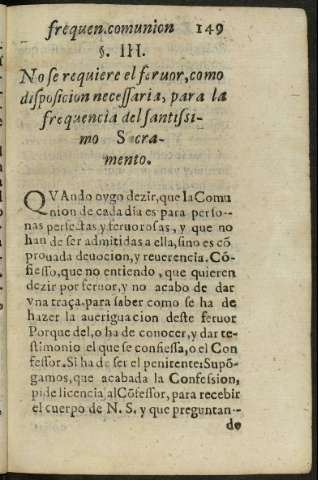 frequen.comunion 149
§. III.
No se requiere el feruor, como
disposicion necessaria, para la
frequencia del santissi-
mo Sacra-
mento.
QVAndo oygo dezir, que la Comu
nion de cada dia es para perso-
nas perfectas y feruorosas, y que no
han de ser admitidas a ella, sino es cõ
prouada deuocion, y reuerencia. Cõ-
fiesso, que no entiendo, que quieren
dezir por feruor, y no acabo de dar
vna traça, para saber como se ha de
hazer la aueriguacion deste feruor
Porque del, o ha de conocer, y dar te-
stimonio el que se confiessa, o el Con
fessor. Si ha de ser el penitente: Supõ-
gamos, que acabada la Confession,
pide licencia al Cõfessor, para recebir
el cuerpo de N. S. y que preguntan-
do